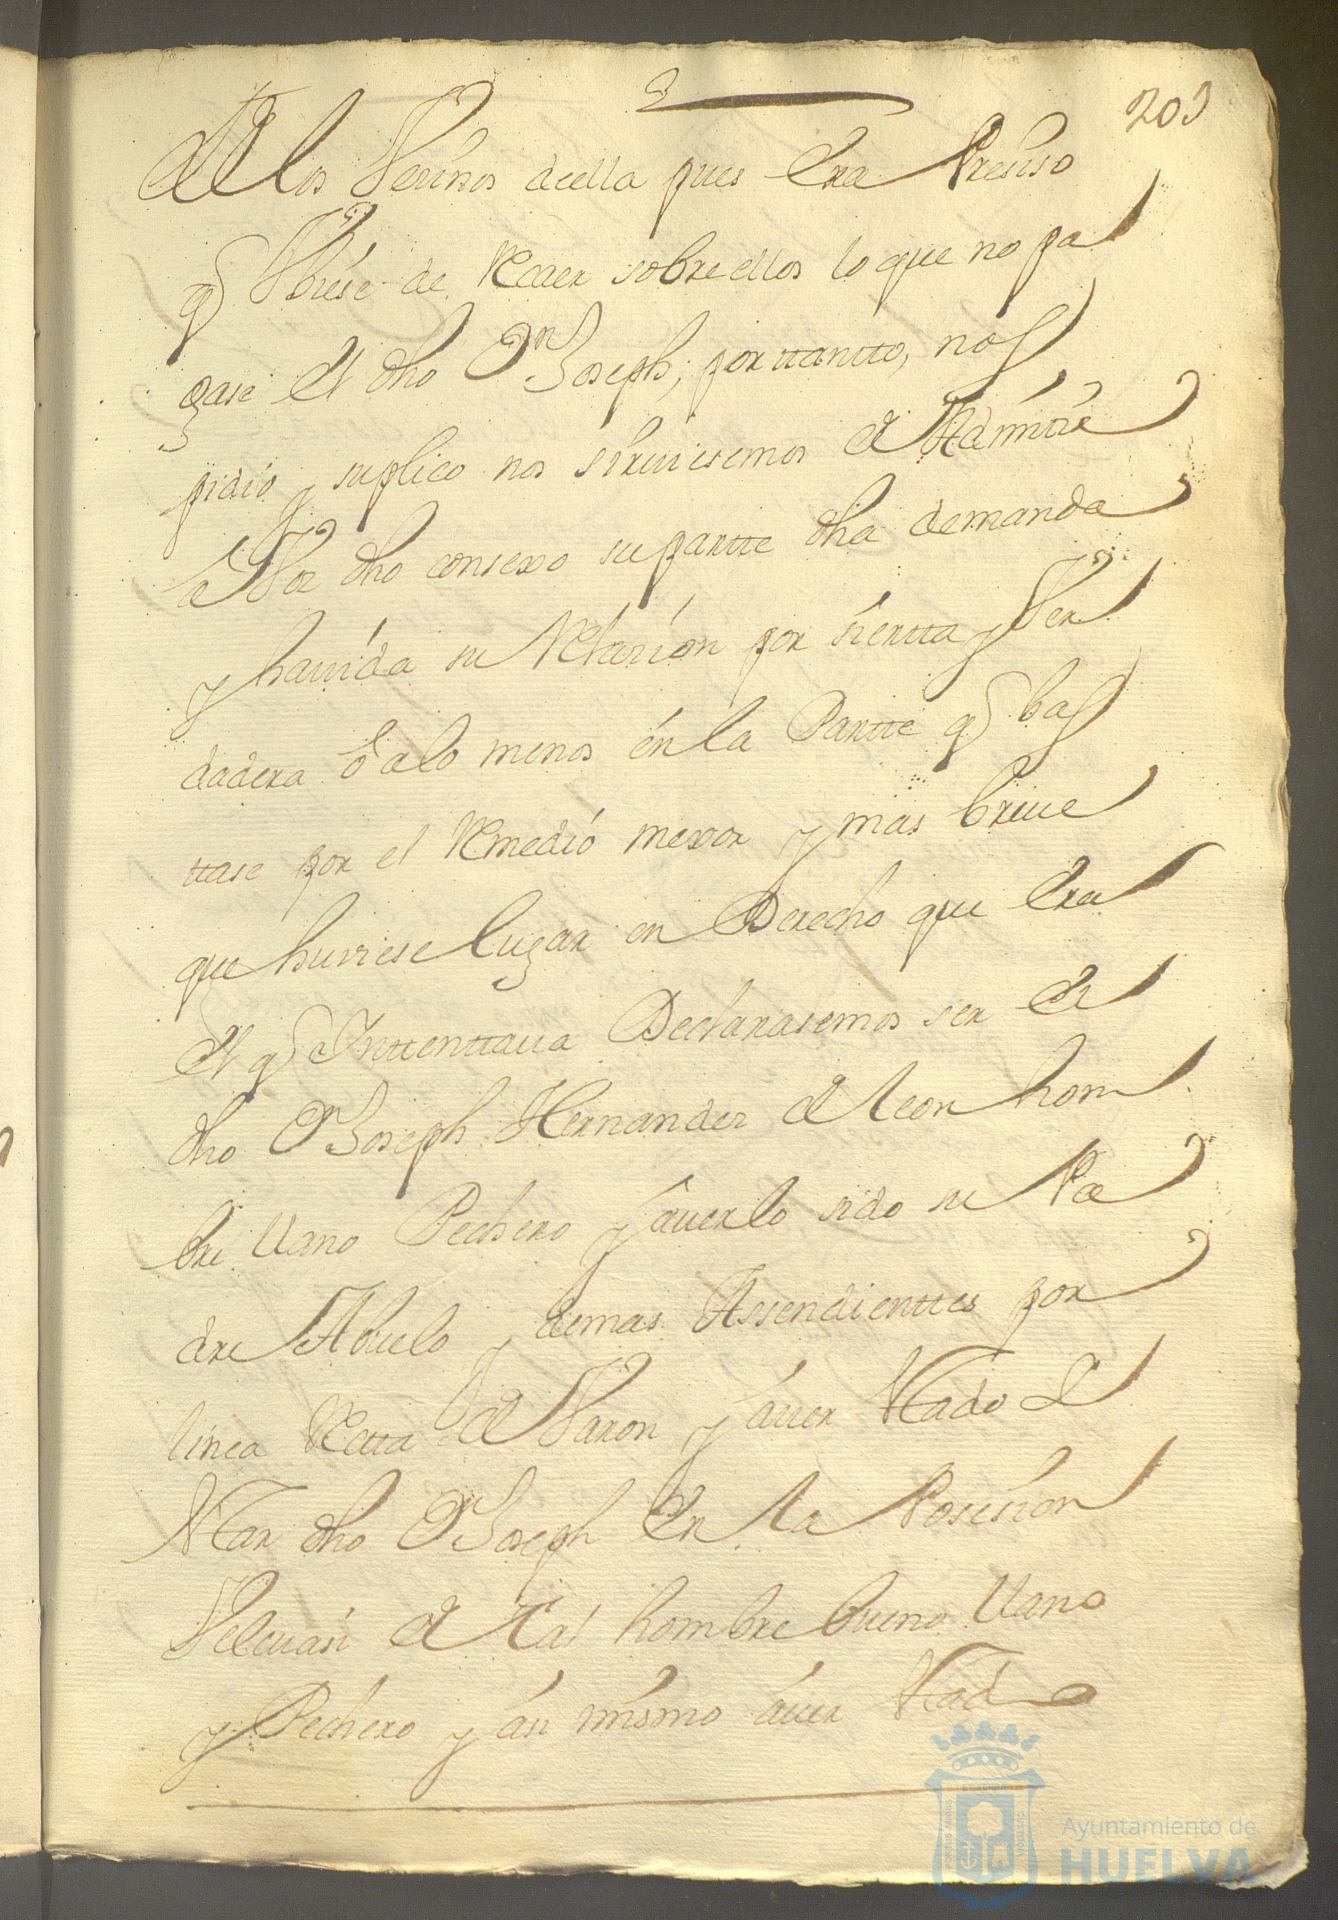 203
de los Vecinos deella pues Era Presiso
q Vbiese de Recaer sobre ellos lo que no pa
gase el dho Dn Joseph, por ttantto, nos
pidio y suplico nos sirviesemos de Admitir
a Voz dho consexo su partte dha demanda
y hauida su Relacion por siertta y Ver
dadera o alo menos en la Partte q bas
ttase por el Remedio mexor y mas breue
que huviese lugar en Derecho que Era
el q Inttenttaua Declarasemos ser el
dho Dn Joseph Hernandez de leon hom
bre llano Pechero y auerlo sido su Pa
dre Abuelo y demas Assendienttes por
linea Retta de Varon y auer Stado
Star dho Dn Joseph En la Posesion
Velcuasi de tal hombre bueno llano
y Pechero y asi mismo auer Stado
Ayuntamiento de
HUELVA